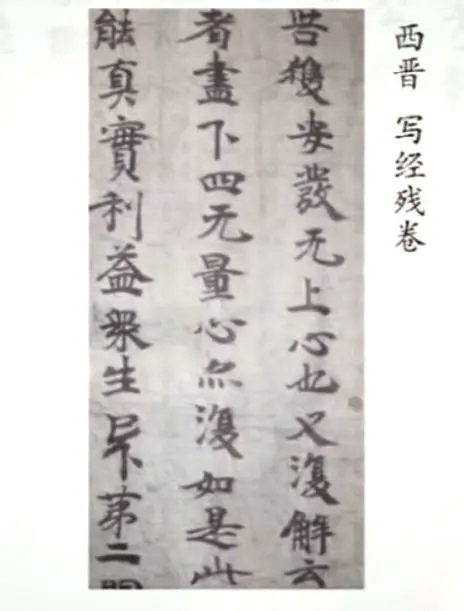 西晋 写经残卷
皆獲安發无上心也又復解云
者盡下四无量心亦復如是此
能真實利益衆生已下第二明